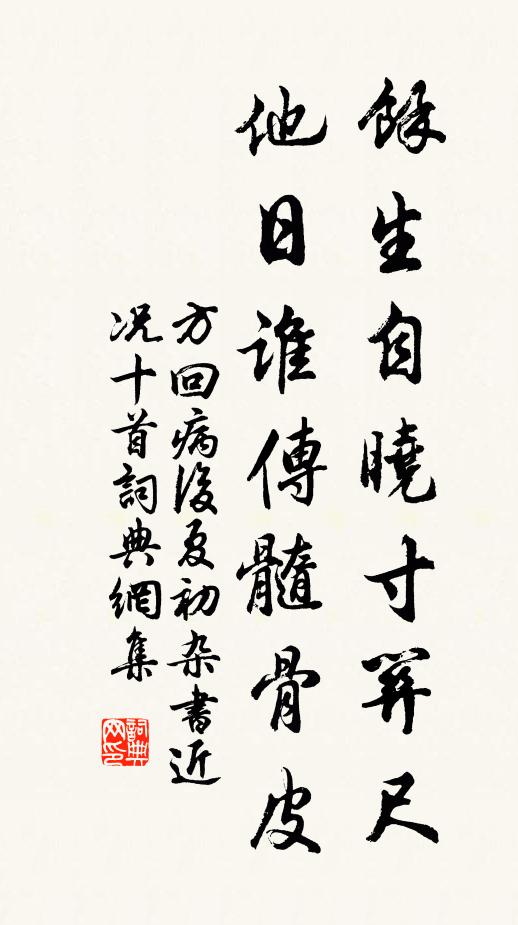 餘生自曉寸筭尺
他日誰傳髓骨皮
方回病後夏初杂書近
况十首詞典網集
詞典網印